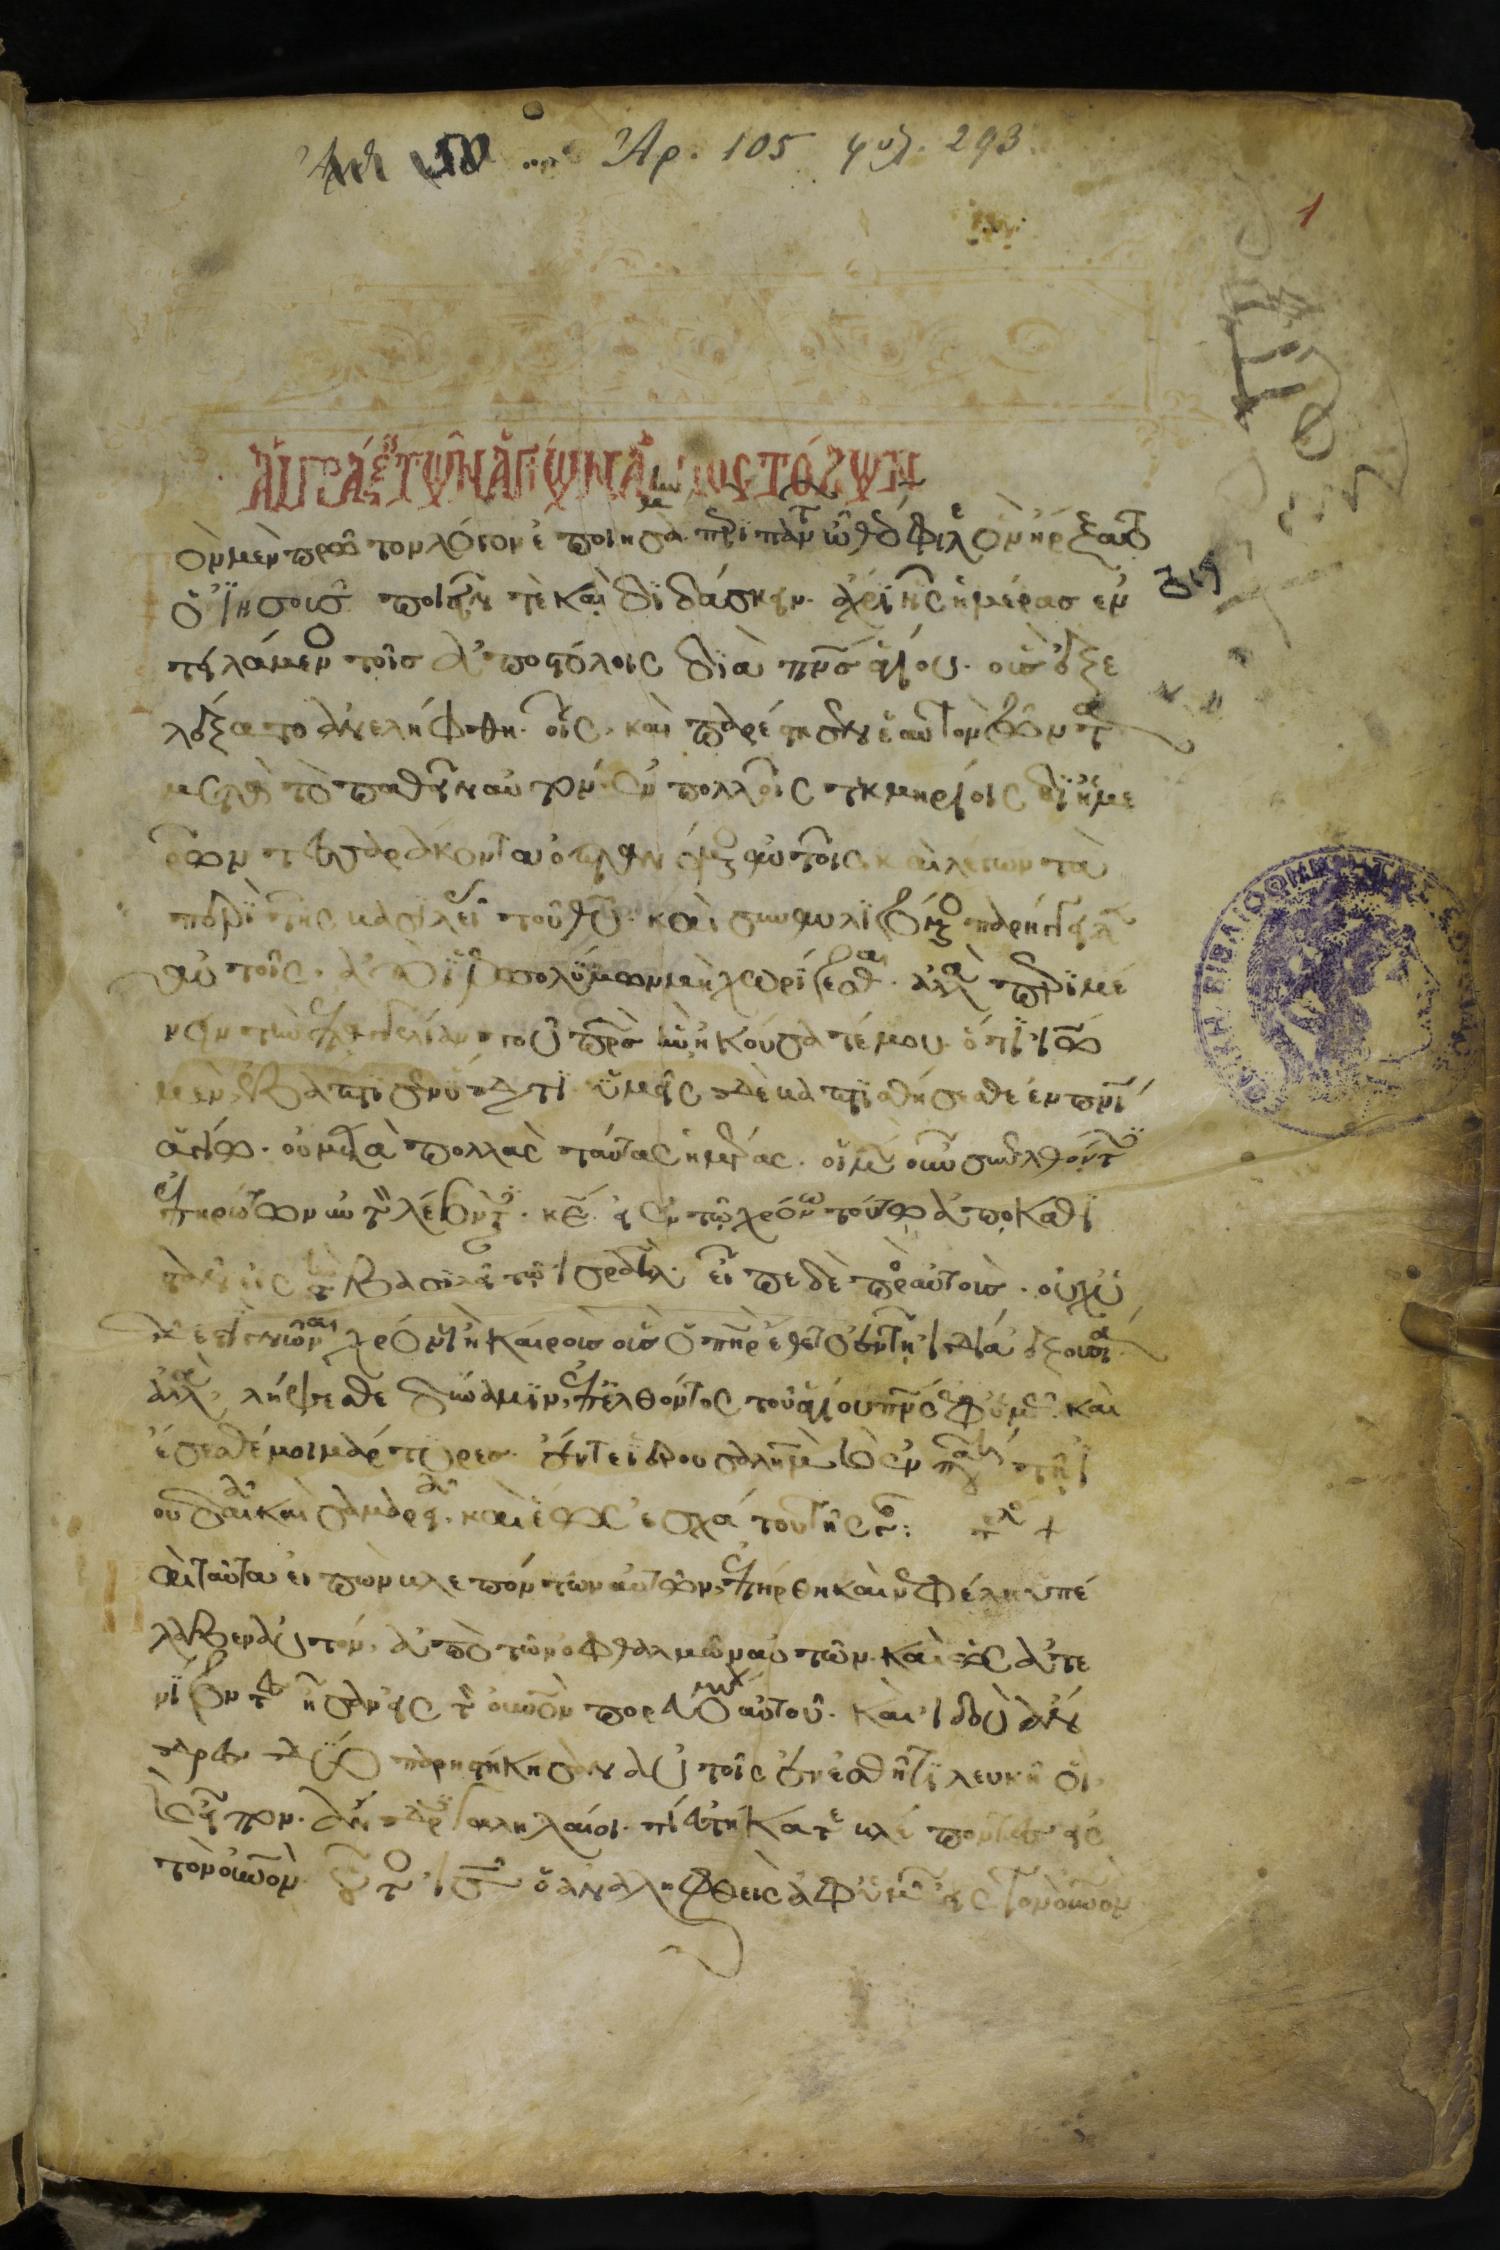 Ἀρ. 105 φύλ. 293
1
ΑΙ ΠΡΑΞ ΤΩΝ ΑΓΙΩΝ ΑΠΟΣΤΟΛΩΝ
ὸν μὲν πρῶτον λόγον ἐποιησά περὶ πάντων ὦ θεόφιλε ὧν ἤρξατο
ὁ ἰησοῦς ποιεῖν τὲ καὶ διδάσκειν. ἄχρι ἧς ἡμέρας ἐν
τειλάμενος τοῖς ἀποστόλοις διὰ πνς ἁγίου. οὓς ἐξε
λέξατο ἀνελήφθη. οἷς καὶ παρέστησεν ἑαυτὸν ζῶντα
μετὰ τὸ παθεῖν αὐτὸν. ἐν πολλοῖς τεκμηρίοις δι ἡμε
ρῶν τεσσαράκοντα ὀπτανόμενος αὐτοῖς καὶ λέγων τὰ
περὶ τῆς βασιλείας τοῦ θυ. καὶ συναυλιζόμενος παρήγγειλεν
αὐτοῖς. ἀπὸ ἱεροσολύμων μὴ χωρίζεσθαι. ἀλλὰ περιμέ
νειν τὴν ἐπαγγελίαν τοῦ πρς ἣν ἠκούσατέ μου. ὅτι ἰω
μὲν ἐβάπτισεν ὕδατι ὑμεῖς δὲ βαπτισθήσεσθε ἐν πνι
ἁγίω. οὐ μετὰ πολλὰς ταύτας ἡμέρας. οἱ μὲν οὖν συνελθόντες
ἐπηρώτων αὐτὸν λέγοντες. κε εἰ ἐν τῶ χρόνω τούτω ἀποκαθι
στάνεις τὴν βασιλείαν τῶ ἰσραήλ. εἶπε δὲ πρὸς αὐτοὺς. οὐχ ὑ
μῶν ἐστὶ γνῶναι χρόνους ἢ καιροὺς οὓς ὁ πηρ ἔθετο ἐν τῆ ἰδία ἐξουσία
ἀλλὰ λήψεσθε δύναμιν, ἐπελθόντος τοῦ ἁγίου πνς ἐφ ὑμᾶς. καὶ
ἔσεσθέ μοι μάρτυρες. ἔν τε ἱερουσαλὴμ καὶ ἐν πάση τῆ ἰ
ουδαία καὶ σαμαρεία. καὶ ἕως ἐσχάτου τῆς γῆς: τελ +
αὶ ταῦτα εἰπὼν βλεπόντων αὐτῶν, ἐπήρθη καὶ νεφέλη ὑπέ
λαβεν αὐτὸν, ἀπὸ τῶν ὀφθαλμῶν αὐτῶν. καὶ ὡς ἀτε
νίζοντες ἦσαν εἰς τὸν οὐνὸν πορευομένου αὐτοῦ. καὶ ἰδοὺ ἄν
δρες δύο παρηστήκησαν αὐτοῖς ἐν ἐσθῆτι λευκῆ οἳ
καὶ εἶπον. ἄνδρες γαλιλαῖοι. τί ἑστήκατε βλέποντες εἰς
τὸν οὐνὸν οὗτος ὁ ις ὁ ἀναληφθεὶς ἀφ ὑμῶν εἰς τὸν οὐνὸν